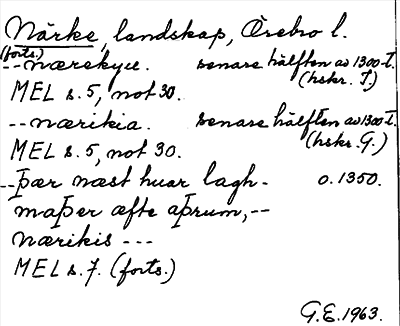 Närke, landskap, Örebro l.
(forts.)
--nærekyu. senare hälften av 1300-t.
(hskr. T.)
MEL s.5, not 30.
--nærikia. senare hälften av 1300-t.
(hskr. G.)
MEL s.5, not 30.
--þær næst huar lagh- o.1350.
maþer æfte aþrum,--
nærikis ---
MEL s.7. (forts.)
G.E.1963.